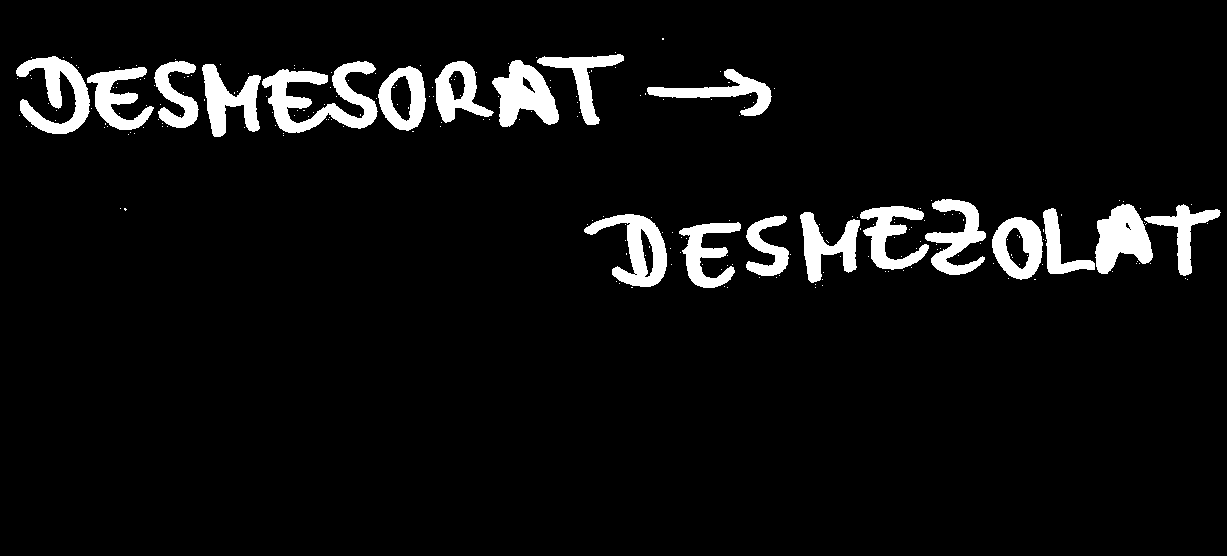 DESMESORAT →
DESMEZOLAT